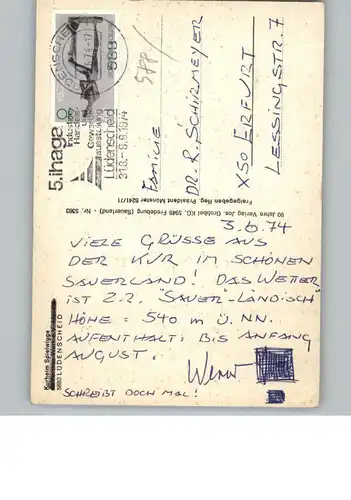 5.ihaga
Industrie
Handels
Gewerbe
ausstellung
Lüdenscheid
31.8.-8.9.1974
Familie
DR. R. SCHIRMEYER
X50 ERFURT
LESSINGSTR. 7
Freigegeben Reg. Präsident Münster 5241/71
90 Jahre Verlag Jos. Grobbel KG, 5949 Fredeburg (Sauerland) - Nr. 5383
Kurheim Spielwigge
5880 LÜDENSCHEID
3.6.74
VIELE GRÜSSE AUS
DER KUR IM SCHÖNEN
SAUERLAND! DAS WETTER
IST Z.Z. "SAUER-LÄNDISCH"
HÖHE = 540 m Ü. NN.
AUFENTHALT: BIS ANFANG
AUGUST.
Werner
SCHREIBT DOCH MAL!